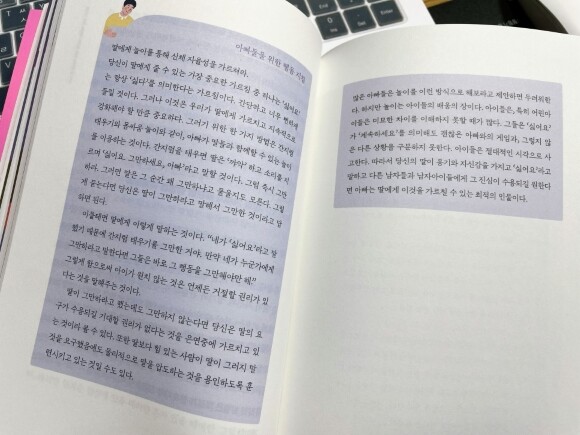 아빠들을 위한 행동 지침
딸에게 놀이를 통해 신체 자율성을 가르쳐라.
당신이 딸에게 줄 수 있는 가장 중요한 가르침 중 하나는 ‘싫어요’
는 항상 ‘싫다’를 의미한다는 가르침이다. 간단하고 너무 뻔하게
들릴 것이다. 그러나 이것은 우리가 딸에게 가르치고 지속적으로
강화해야 할 만큼 중요하다. 그러기 위한 한 가지 방법은 간지럼
태우기와 몸싸움 놀이와 같이, 아빠가 딸들과 함께할 수 있는 놀이
를 이용하는 것이다. 간지럼을 태우면 딸은 “까야” 하고 소리를 지
르며 “싫어요. 그만하세요, 아빠”라고 말할 것이다. 그럼 즉시 그만
하라. 그러면 딸은 그 순간 왜 그만하냐고 물을지도 모른다. 그렇
게 묻는다면 당신은 딸이 그만하라고 말해서 그만한 것이라고 답
하면 된다.
이를테면 딸에게 이렇게 말하는 것이다. “네가 ‘싫어요’라고 말
했기 때문에 간지럼 태우기를 그만한 거야. 만약 네가 누군가에게
그만하라고 말한다면 그들은 바로 그 행동을 그만해야만 해.”
그렇게 함으로써 아이가 원치 않는 것은 언제든 거절할 권리가 있
다는 것을 말해주는 것이다.
딸이 그만하라고 했는데도 그만하지 않는다면 당신은 딸의 요
구가 수용되길 기대할 권리가 없다는 것을 은연중에 가르치고 있
는 것이라 볼 수 있다. 또한 딸보다 힘 있는 사람이 딸이 그러지 말
것을 요구했음에도 물리적으로 딸을 압도하는 것을 용인하도록 훈
련시키고 있는 것일 수도 있다.
많은 아빠들은 놀이를 이런 방식으로 해보라고 제안하면 두려워한
다. 하지만 놀이는 아이들의 배움의 장이다. 아이들은, 특히 어린아
이들은 미묘한 차이를 이해하지 못할 때가 많다. 그들은 ‘싫어요’
가 ‘계속하세요’를 의미해도 괜찮은 아빠와의 게임과, 그렇지 않
은 다른 상황을 구분하지 못한다. 아이들은 절대적인 시각으로 사
고한다. 따라서 당신의 딸이 용기와 자신감을 가지고 ‘싫어요’라고
말하고 다른 남자들과 남자아이들에게 그 진심이 수용되길 원한다
면 아빠는 딸에게 이것을 가르칠 수 있는 최적의 인물이다.